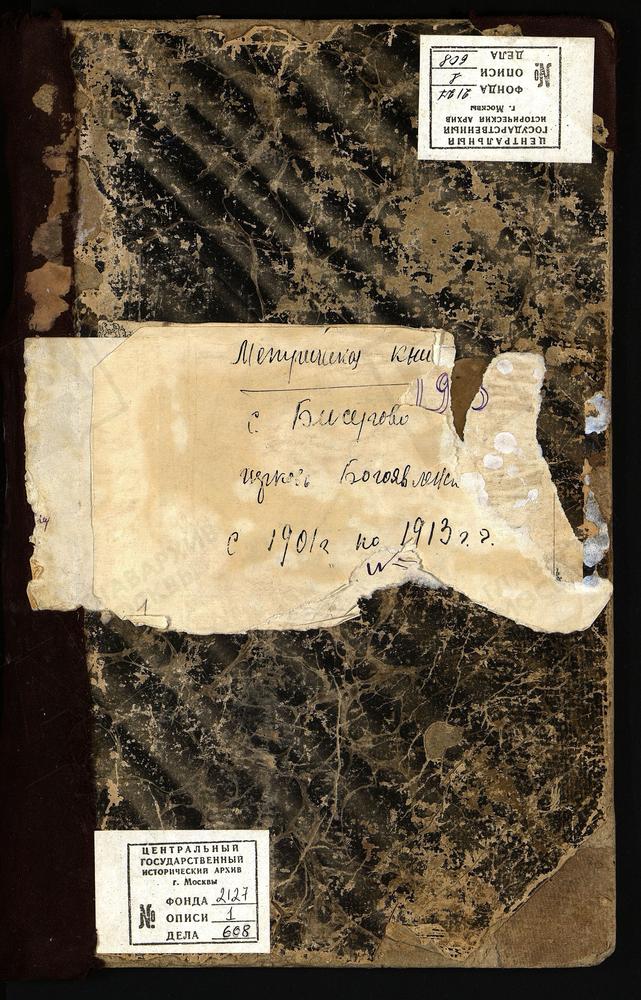 ЦЕНТРАЛЬНЫЙ
ГОСУДАРСТВЕННЫЙ
ИСТОРИЧЕСКИЙ АРХИВ
г. Москвы
№
ФОНДА 2127
ОПИСИ 1
ДЕЛА 608
Метрическая кни
с Бисерово
церковь Богоявлен
с 1901г по 1913 г.г.
1
ЦЕНТРАЛЬНЫЙ
ГОСУДАРСТВЕННЫЙ
ИСТОРИЧЕСКИЙ АРХИВ
г. Москвы
№
ФОНДА 2127
ОПИСИ 1
ДЕЛА 608